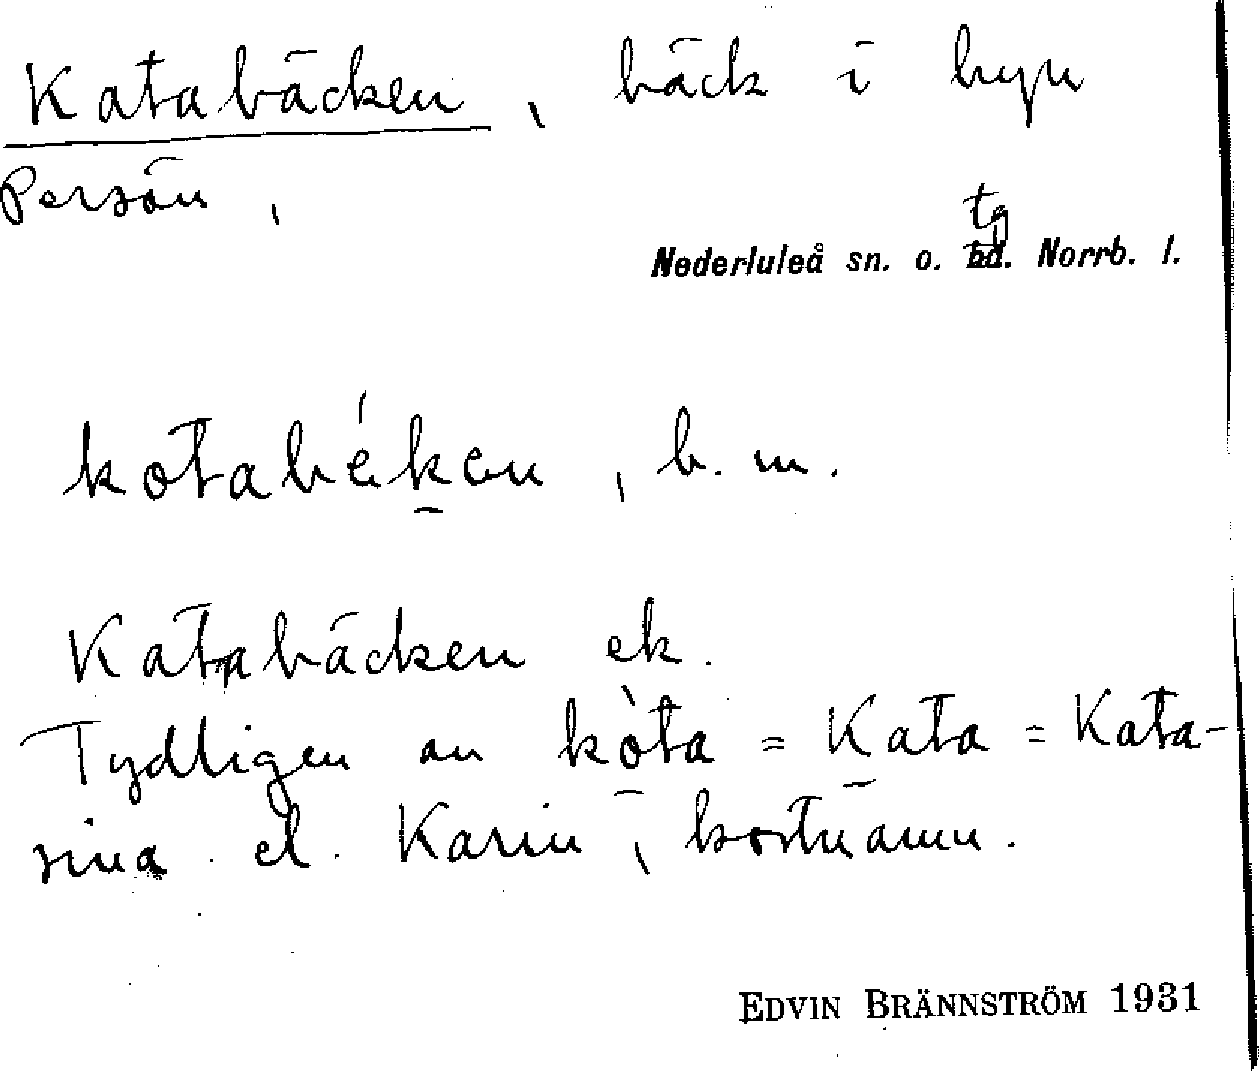 Katabäcken, bäck i byn
Persön,
tg
Nederluleå sn. o. bd. Norrb. l.
kotabékȩn, b. m.
Katabäcken ek.
Tydligen av kòta = Kata = Kata-
rina el. Karin, kortnamn.
EDVIN BRÄNNSTRÖM 1931